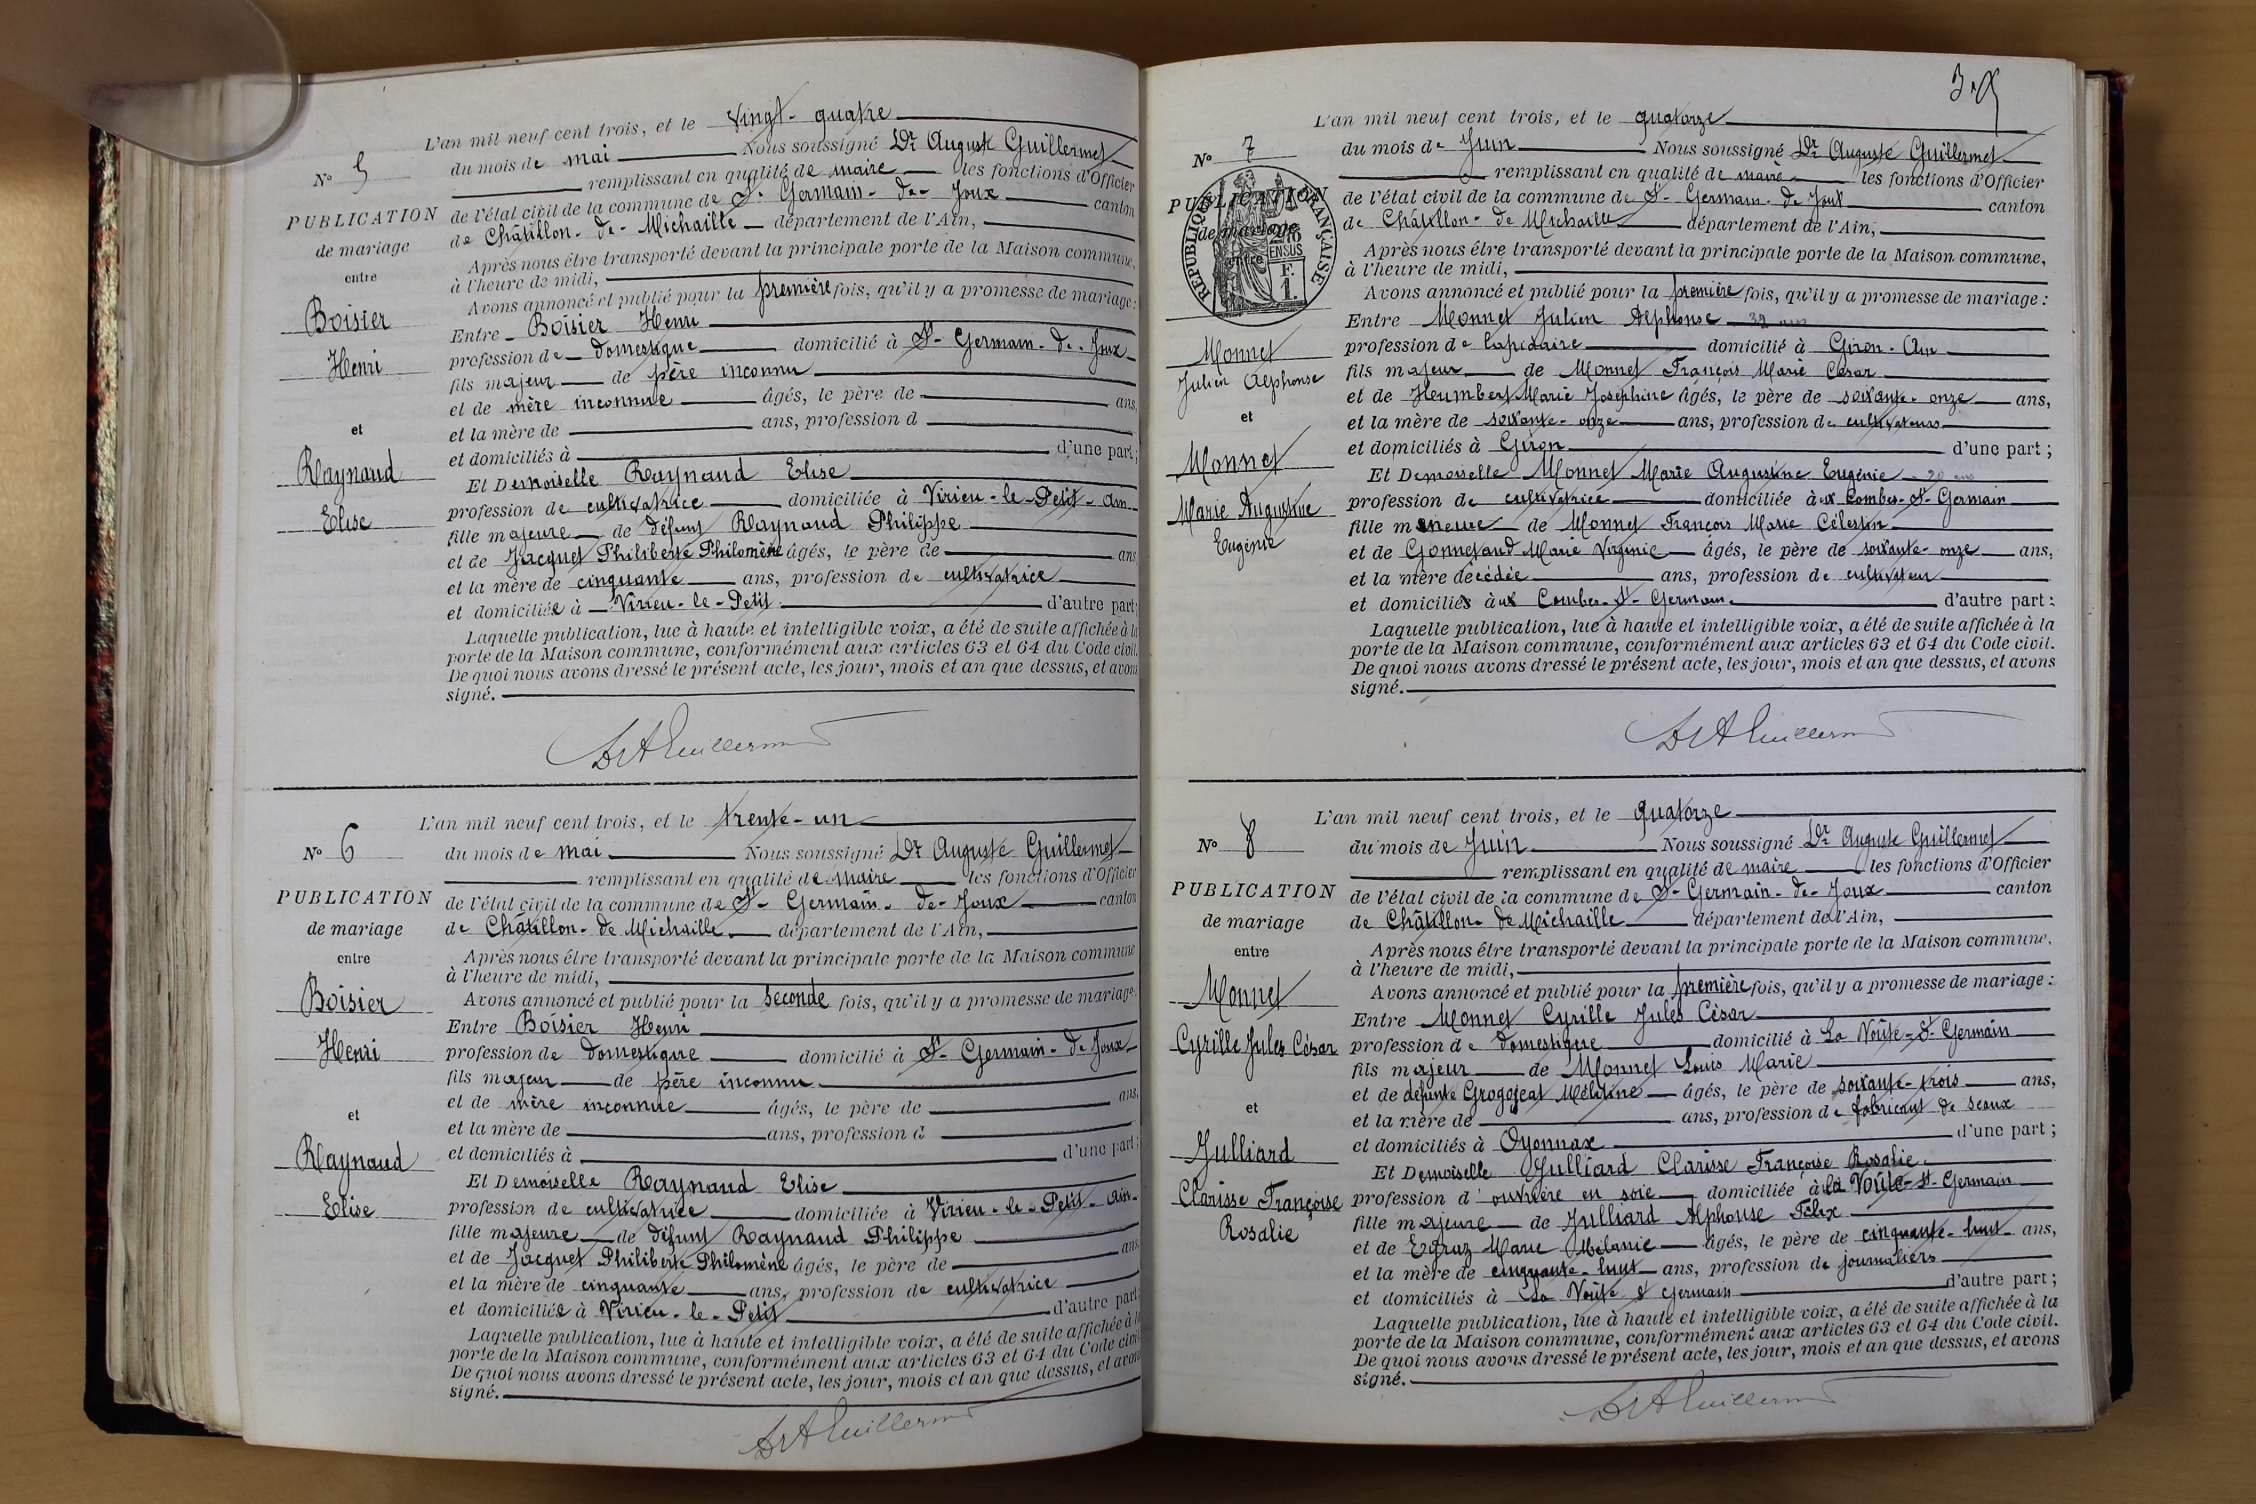 L'an mil neuf cent trois, et le vingt-quatre
N° 5
du mois de mai Nous soussigné Dr Auguste Guillermet
remplissant en qualité de maire les fonctions d'Officier
PUBLICATION
de mariage
entre
Boisier
Henri
et
Raynaud
Elise
de l'état civil de la commune de St- Germain-de-Joux canton
de Châtillon-de-Michaille département de l'Ain,
Après nous être transporté devant la principale porte de la Maison commune,
à l'heure de midi,
Avons annoncé et publié pour la première fois, qu'il y a promesse de mariage:
Entre Boisier Henri
profession de domestique domicilié à St-Germain-de-Joux
fils majeur de père inconnu
et de mère inconnue âgés, le père de ans,
et la mère de ans, profession d
et domiciliés à d'une part;
Et Demoiselle Raynaud Elise
profession de cultivatrice domiciliée à Virieu-le-Petit-Ain
fille majeure de défunt Raynaud Philippe
et de Jacquet Philiberte Philomène âgés, le père de ans
et la mère de cinquante ans, profession de cultivatrice
et domiciliée à Virieu-le-Petit d'autre part;
Laquelle publication, lue à haute et intelligible voix, a été de suite affichée à la
porte de la Maison commune, conformément aux articles 63 et 64 du Code civil.
De quoi nous avons dressé le présent acte, les jour, mois et an que dessus, et avons
signé.
Dr A Guillermet
L'an mil neuf cent trois, et le trente-un
N° 6
du mois de mai Nous soussigné Dr Auguste Guillermet
remplissant en qualité de maire les fonctions d'Officier
PUBLICATION
de mariage
entre
Boisier
Henri
et
Raynaud
Elise
de l'état civil de la commune de St- Germain-de-Joux canton
de Châtillon-de Michaille département de l'Ain,
Après nous être transporté devant la principale porte de la Maison commune
à l'heure de midi,
Avons annoncé et publié pour la seconde fois, qu'il y a promesse de mariage:
Entre Boisier Henri
profession de domestique domicilié à St- Germain-de Joux
fils majeur de père inconnu
et de mère inconnue âgés, le père de ans,
et la mère de ans, profession d
et domiciliés à d'une part;
Et Demoiselle Raynaud Elise
profession de cultivatrice domiciliée à Virieu-le-Petit-Ain-
fille majeure de défunt Raynaud Philippe
et de Jacquet Philiberte Philomène âgés, le père de ans
et la mère de cinquante ans, profession de cultivatrice
et domiciliée à Virieu-le-Petit d'autre part
Laquelle publication, lue à haute et intelligible voix, a été de suite affichée à la
porte de la Maison commune, conformément aux articles 63 et 64 du Code civil
De quoi nous avons dressé le présent acte, les jour, mois et an que dessus, et avons
signé.
Dr A Guillermet
L'an mil neuf cent trois, et le quatorze
N° 7
du mois de Juin Nous soussigné Dr Auguste Guillermet
remplissant en qualité de maire les fonctions d'Officier
PUBLICATION
de mariage
entre
RÉPUBLIQUE FRANÇAISE
2/10 EN SUS
F.
1.
Monnet
Julien Alphonse
et
Monnet
Marie Augustine
Eugénie
de l'état civil de la commune de St- Germain-de Joux canton
de Châtillon-de Michaille département de l'Ain,
Après nous être transporté devant la principale porte de la Maison commune,
à l'heure de midi,
Avons annoncé et publié pour la première fois, qu'il y a promesse de mariage:
Entre Monnet Julien Alphonse 39 ans
profession de lapidaire domicilié à Giron-Ain
fils majeur de Monnet François Marie César
et de Humbert Marie Joséphine âgés, le père de soixante-onze ans,
et la mère de soixante-onze ans, profession de cultivateurs
et domiciliés à Giron d'une part;
Et Demoiselle Monnet Marie Augustine Eugénie 20 ans
profession de cultivatrice domiciliée aux Combes-St-Germain
fille mineure de Monnet François Marie Célestin
et de Gonnetand Marie Virginie âgés, le père de soixante-onze ans,
et la mère décédée ans, profession de cultivateur
et domiciliés aux Combes-St-Germain d'autre part:
Laquelle publication, lue à haute et intelligible voix, a été de suite affichée à la
porte de la Maison commune, conformément aux articles 63 et 64 du Code civil.
De quoi nous avons dressé le présent acte, les jour, mois et an que dessus, et avons
signé.
Dr A Guillermet
L'an mil neuf cent trois, et le quatorze
N° 8
du mois de Juin Nous soussigné Dr Auguste Guillermet
remplissant en qualité de maire les fonctions d'Officier
PUBLICATION
de mariage
entre
Monnet
Cyrille Jules César
et
Julliard
Clarisse Françoise
Rosalie
de l'état civil de la commune de St- Germain-de-Joux canton
de Châtillon-de Michaille département de l'Ain,
Après nous être transporté devant la principale porte de la Maison commune,
à l'heure de midi,
Avons annoncé et publié pour la première fois, qu'il y a promesse de mariage:
Entre Monnet Cyrille Jules César
profession de domestique domicilié à La Voûte-St-Germain
fils majeur de Monnet Louis Marie
et de défunte Grogojeat Méletine âgés, le père de soixante-trois ans,
et la mère de ans, profession de fabricant de sceaux
et domiciliés à Oyonnax d'une part;
Et Demoiselle Julliard Clarisse Françoise Rosalie
profession d'ouvrière en soie domiciliée à la Voûte-St-Germain
fille majeure de Julliard Alphonse Félix
et de Evraz Marie Mélanie âgés, le père de cinquante-huit ans,
et la mère de cinquante-huit ans, profession de journaliers
et domiciliés à La Voûte St Germain d'autre part;
Laquelle publication, lue à haute et intelligible voix, a été de suite affichée à la
porte de la Maison commune, conformément aux articles 63 et 64 du Code civil.
De quoi nous avons dressé le présent acte, les jour, mois et an que dessus, et avons
signé.
Dr A Guillermet